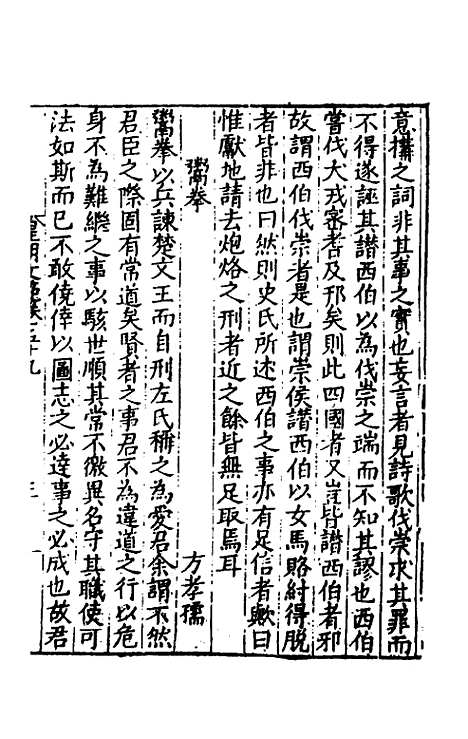 意搆之詞非其事之實也妄言者見詩歌伐崇求其罪而
不得遂誣其譛西伯以為伐崇之端而不知其謬也西伯
嘗伐大戎審耆及邘矣則此四國者又豈皆譛西伯者邪
故謂西伯伐崇者是也謂崇侯譛西伯以女馬賂紂得脫
者皆非也曰然則史氏所述西伯之事亦有足信者歟曰
惟獻地請去炮烙之刑者近之餘皆無足取焉耳
鬻拳
方孝孺
鬻拳以兵諫楚文王而自刑左氏稱之為愛君余謂不然
君臣之際固有常道矣賢者之事君不為違道之行以危
身不為難繼之事以駭世順其常不徼異名守其職使可
法如斯而已不敢僥倖以圖志之必逹事之必成也故君
皇明文衡卷